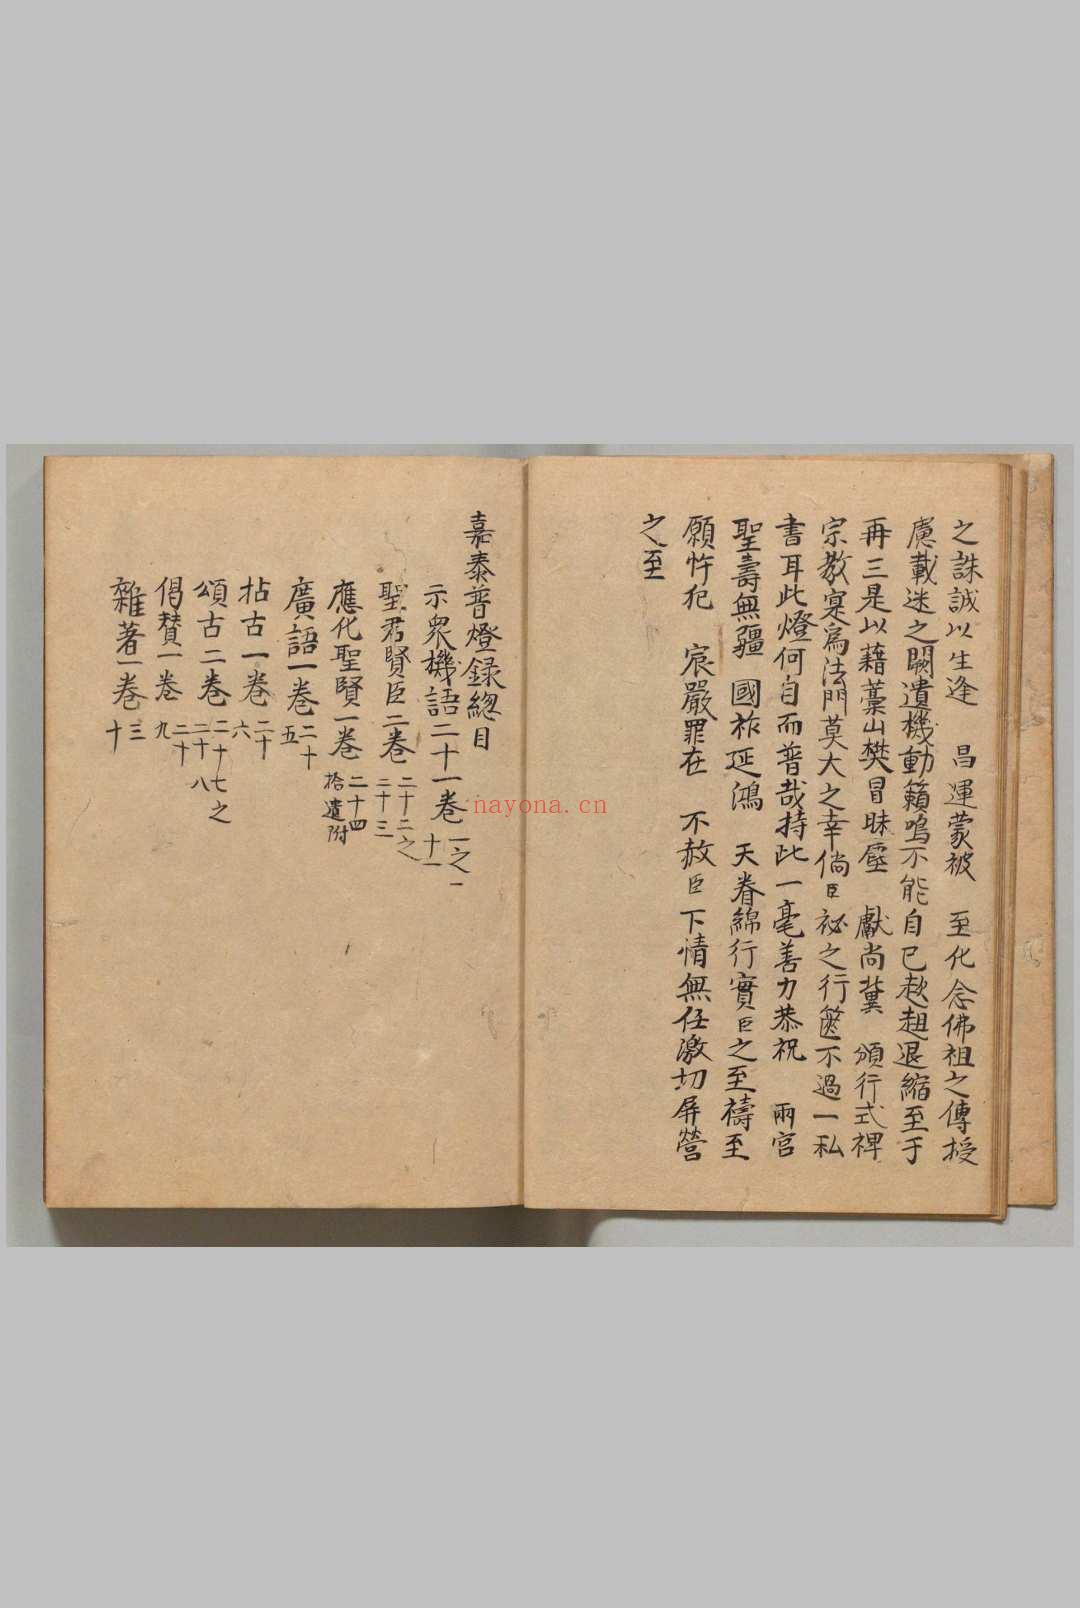 之誅誠以生逢　昌運蒙被　至化念佛祖之傳授
慮載迷之闕遺機動籟鳴不能自已趑趄退縮至于
再三是以藉藁山樊冒昧塵　獻尚冀　頒行式裨
宗教寔爲法門莫大之幸倘臣祕之行篋不過一私
書耳此燈何自而普哉持此一毫善力恭祝　兩宮
聖壽無疆　國祚延鴻　天眷綿行實臣之至禱至
願忤犯　宸嚴罪在　不赦臣下情無任激切屏營
之至
嘉泰普燈録總目
示衆機語二十一卷 一之二十一
聖君賢臣二卷 二十二之二十三
應化聖賢一卷 二十四拾遺附
廣語一卷 二十五
拈古一卷 二十六
頌古二卷 二十七之二十八
偈賛一卷 二十九
雜著一卷 三十
nayona.cn